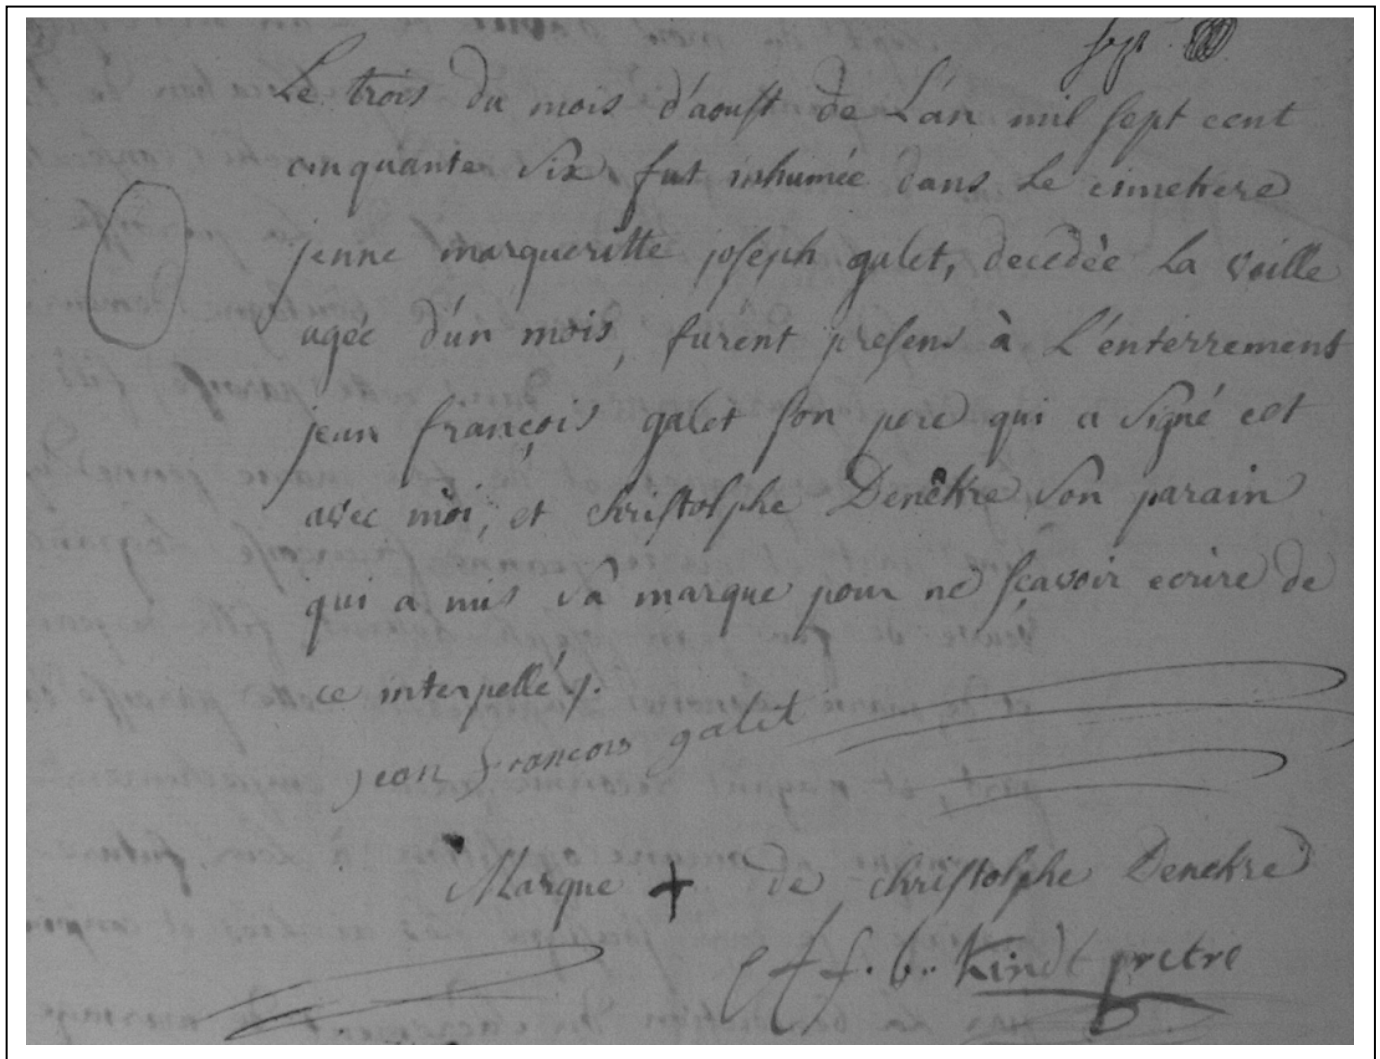 sept
Le trois du mois d'aoust de L'an mil sept cent
cinquante six fut inhumée dans Le cimetiere
jenne marqueritte joseph galet, decedèe La veille
agée d'un mois, furent presens à L'énterrement
jean françois galet son pere qui a signé cet
avec moi, et christolphe Denekre son parain
qui a mis sa marque pour ne sçavoir ecrire de
ce interpellé ./.
jean francois galet
Marque + de christolphe Denekre
f. b. Kindt pretre